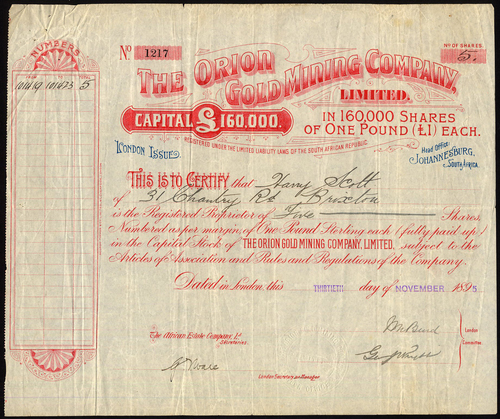 NUMBERS
FROM TO TOTAL
101619 101623 5
No 1217
No OF SHARES
5
THE ORION
GOLD MINING COMPANY,
LIMITED.
CAPITAL £160,000.
IN 160,000 SHARES
OF ONE POUND (£1) EACH.
REGISTERED UNDER THE LIMITED LIABILITY LAWS OF THE SOUTH AFRICAN REPUBLIC
LONDON ISSUE
Head Office
JOHANNESBURG,
SOUTH AFRICA.
THIS IS TO CERTIFY that Harry Scott
of 31 Chantry Rd Brixton
is the Registered Proprietor of Five Shares,
Numbered as per margin of One Pound Sterling each (fully paid up)
in the Capital Stock of THE ORION GOLD MINING COMPANY, LIMITED, subject to the
Articles of Association and Rules and Regulations of the Company.
Dated in London, this THIRTIETH day of NOVEMBER 1895
The African Estate Company, Ld
Secretaries.
London
Committee
London Secretary or Manager